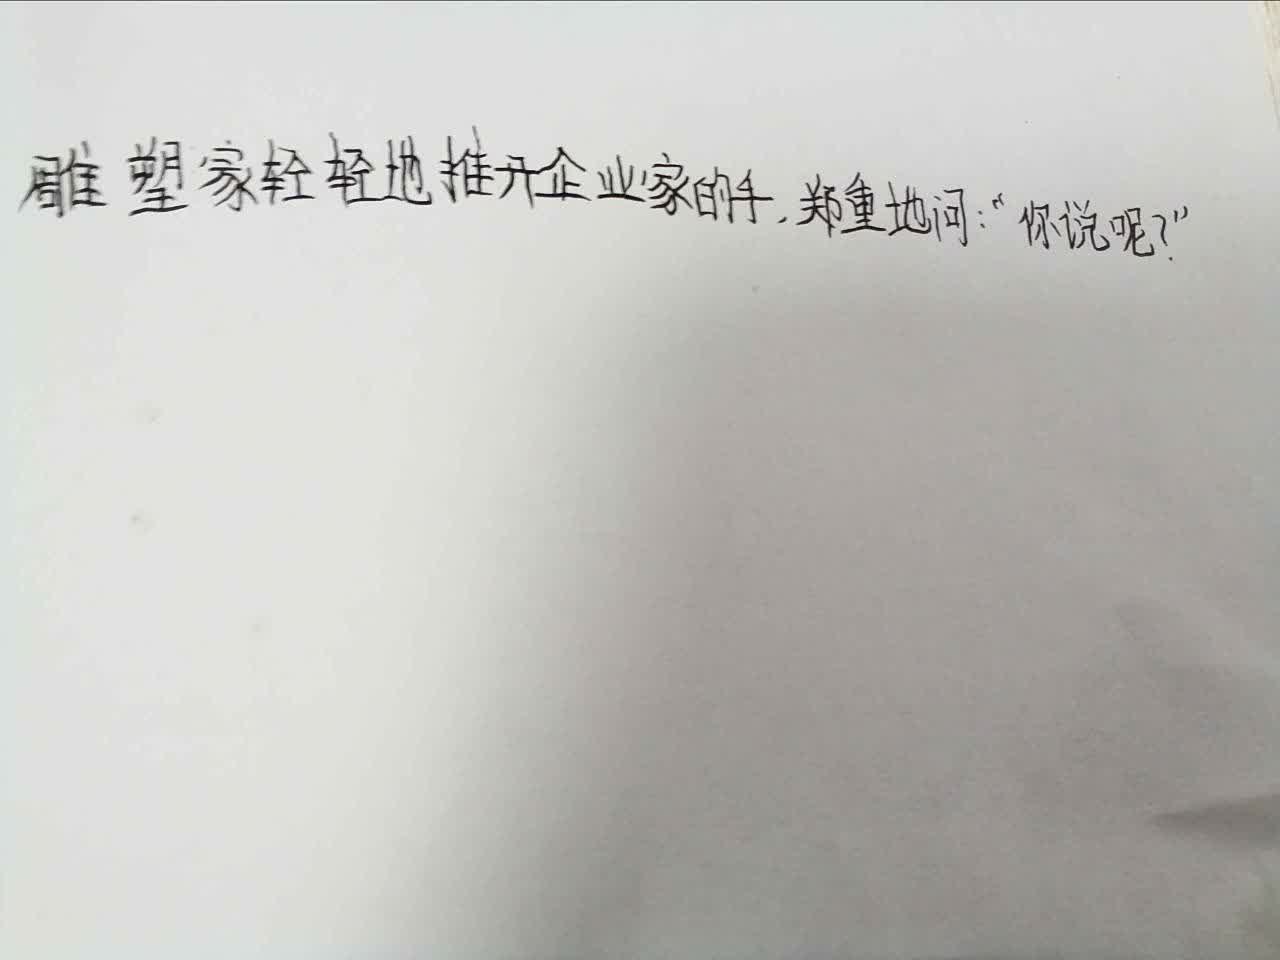 雕塑家轻轻地推开企业家的手,郑重地问:“你说呢?”